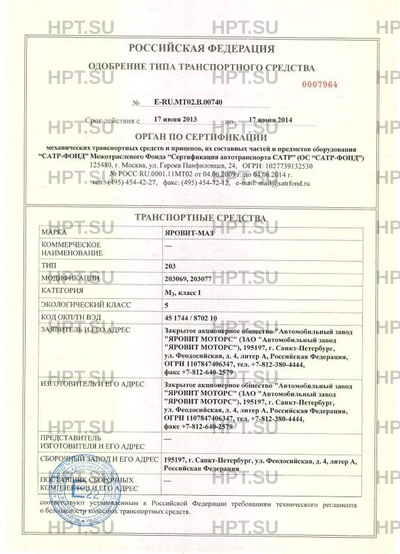 РОССИЙСКАЯ ФЕДЕРАЦИЯ
ОДОБРЕНИЕ ТИПА ТРАНСПОРТНОГО СРЕДСТВА
0007964
№ E-RU.MT02.B.00740
Срок действия с 17 июня 2013 по 17 июня 2014
ОРГАН ПО СЕРТИФИКАЦИИ
механических транспортных средств и прицепов, их составных частей и предметов оборудования
“САТР-ФОНД” Межотраслевого Фонда “Сертификация автотранспорта САТР” (ОС “САТР-ФОНД”)
125480, г. Москва, ул. Героев Панфиловцев, 24, ОГРН: 1027739132530
№ РОСС RU.0001.11МТ02 от 04.06.2009 г. до 04.06.2014 г.
тел.: (495) 454-42-27, факс: (495) 454-72-12, e-mail: mail@satrfond.ru
ТРАНСПОРТНЫЕ СРЕДСТВА
МАРКА ЯРОВИТ-МАЗ
КОММЕРЧЕСКОЕ —
НАИМЕНОВАНИЕ
ТИП 203
МОДИФИКАЦИИ 203069, 203077
КАТЕГОРИЯ М3, класс I
ЭКОЛОГИЧЕСКИЙ КЛАСС 5
КОД ОКП/ТН ВЭД 45 1744 / 8702 10
ЗАЯВИТЕЛЬ И ЕГО АДРЕС Закрытое акционерное общество "Автомобильный завод
"ЯРОВИТ МОТОРС" (ЗАО "Автомобильный завод
"ЯРОВИТ МОТОРС"), 195197, г. Санкт-Петербург,
ул. Феодосийская, д. 4, литер А, Российская Федерация,
ОГРН 1107847406347, тел. +7-812-380-4444,
факс +7-812-640-2579
ИЗГОТОВИТЕЛЬ И ЕГО АДРЕС Закрытое акционерное общество "Автомобильный завод
"ЯРОВИТ МОТОРС" (ЗАО "Автомобильный завод
"ЯРОВИТ МОТОРС"), 195197, г. Санкт-Петербург,
ул. Феодосийская, д. 4, литер А, Российская Федерация,
ОГРН 1107847406347, тел. +7-812-380-4444,
факс +7-812-640-2579
ПРЕДСТАВИТЕЛЬ —
ИЗГОТОВИТЕЛЯ И ЕГО АДРЕС
СБОРОЧНЫЙ ЗАВОД И ЕГО АДРЕС 195197, г. Санкт-Петербург, ул. Феодосийская, д. 4, литер А,
Российская Федерация
ПОСТАВЩИК СБОРОЧНЫХ —
КОМПЛЕКТОВ И ЕГО АДРЕС
соответствуют установленным в Российской Федерации требованиям технического регламента
о безопасности колесных транспортных средств.
HPT.SU